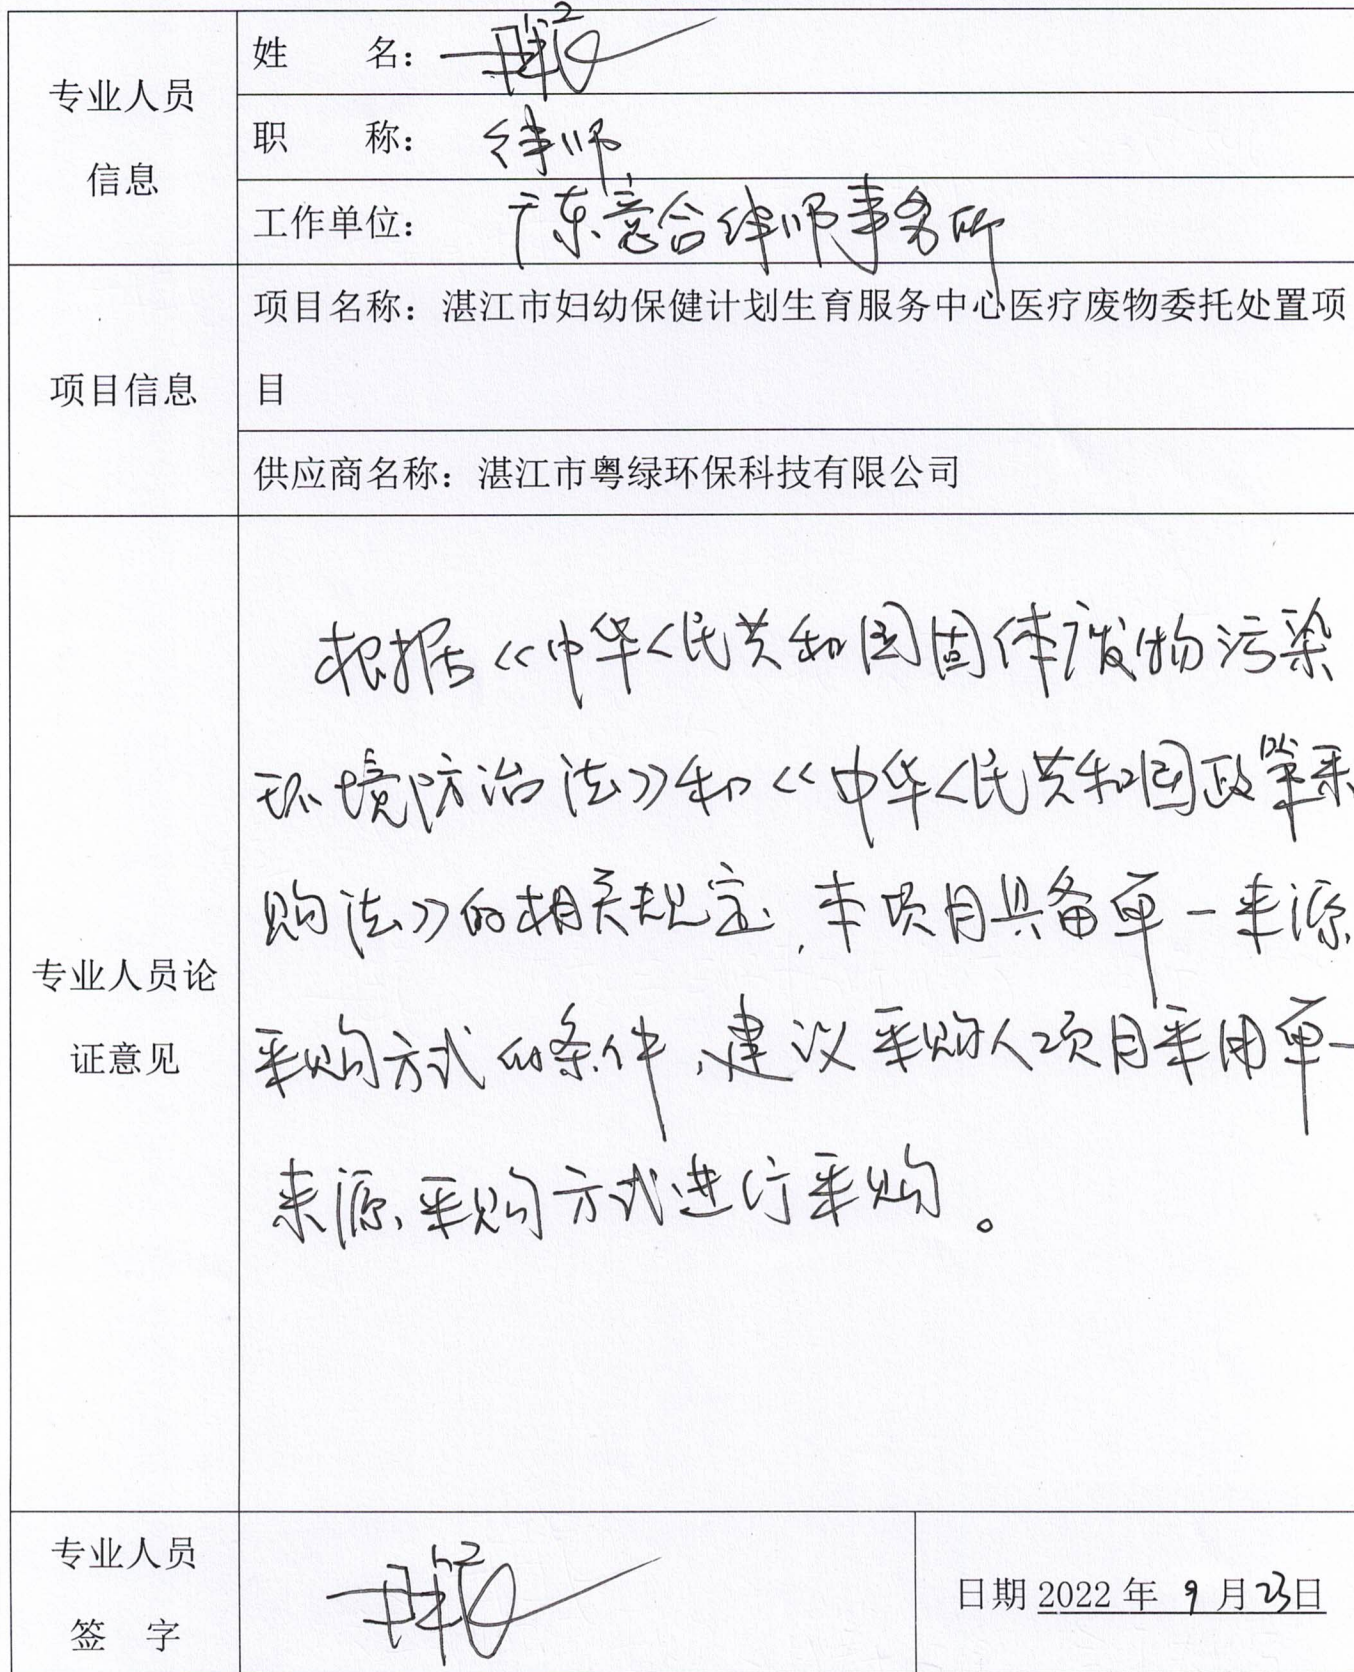 专业人员
信息
姓 名：
职 称： 律师
工作单位： 广东意合律师事务所
项目信息
项目名称：湛江市妇幼保健计划生育服务中心医疗废物委托处置项
目
供应商名称：湛江市粤绿环保科技有限公司
专业人员论
证意见
根据《中华人民共和国固体废物污染
环境防治法》和《中华人民共和国政策采
购法》的相关规定，本项目具备单一来源
采购方式的条件，建议采购人项目采用单一
来源采购方式进行采购。
专业人员
签 字
日期 2022 年 9 月 23 日